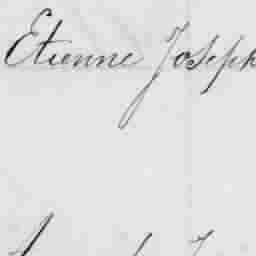 Etienne Joseph